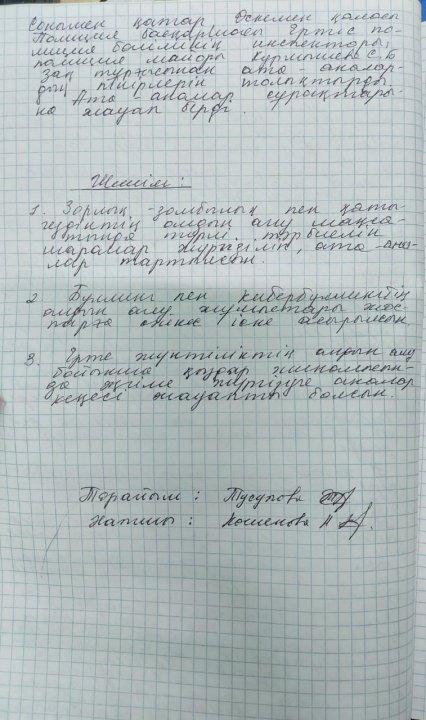 Сонымен қатар Өскемен қаласы
Полиция басқармасы Ертіс по-
лиция бөлімінің инспекторы,
полиция майоры Құрмышева С.Б
заң тұрғысынан ата аналар-
дың пікірлерін толықтырды.
Ата аналар сұрақтары-
на жауап берді.
Шешім:
1. Зорлық-зомбылық пен қаты-
гездіктің алдын алу мақса-
тында түрлі тәрбиелік
шаралар жүргізіліп, ата-ана-
лар тартылсын.
2 Буллинг пен кибербуллингтің
алдын алу жұмыстары жос-
парға сәйкес іске асырылсын.
3. Ерте жүктіліктің алдын алу
бойынша қыздар
да әңгіме жүргізуге аналар
кеңесі жауапты болсын.
Төрайым: Тусупова
Хатшы: Кошенова Н